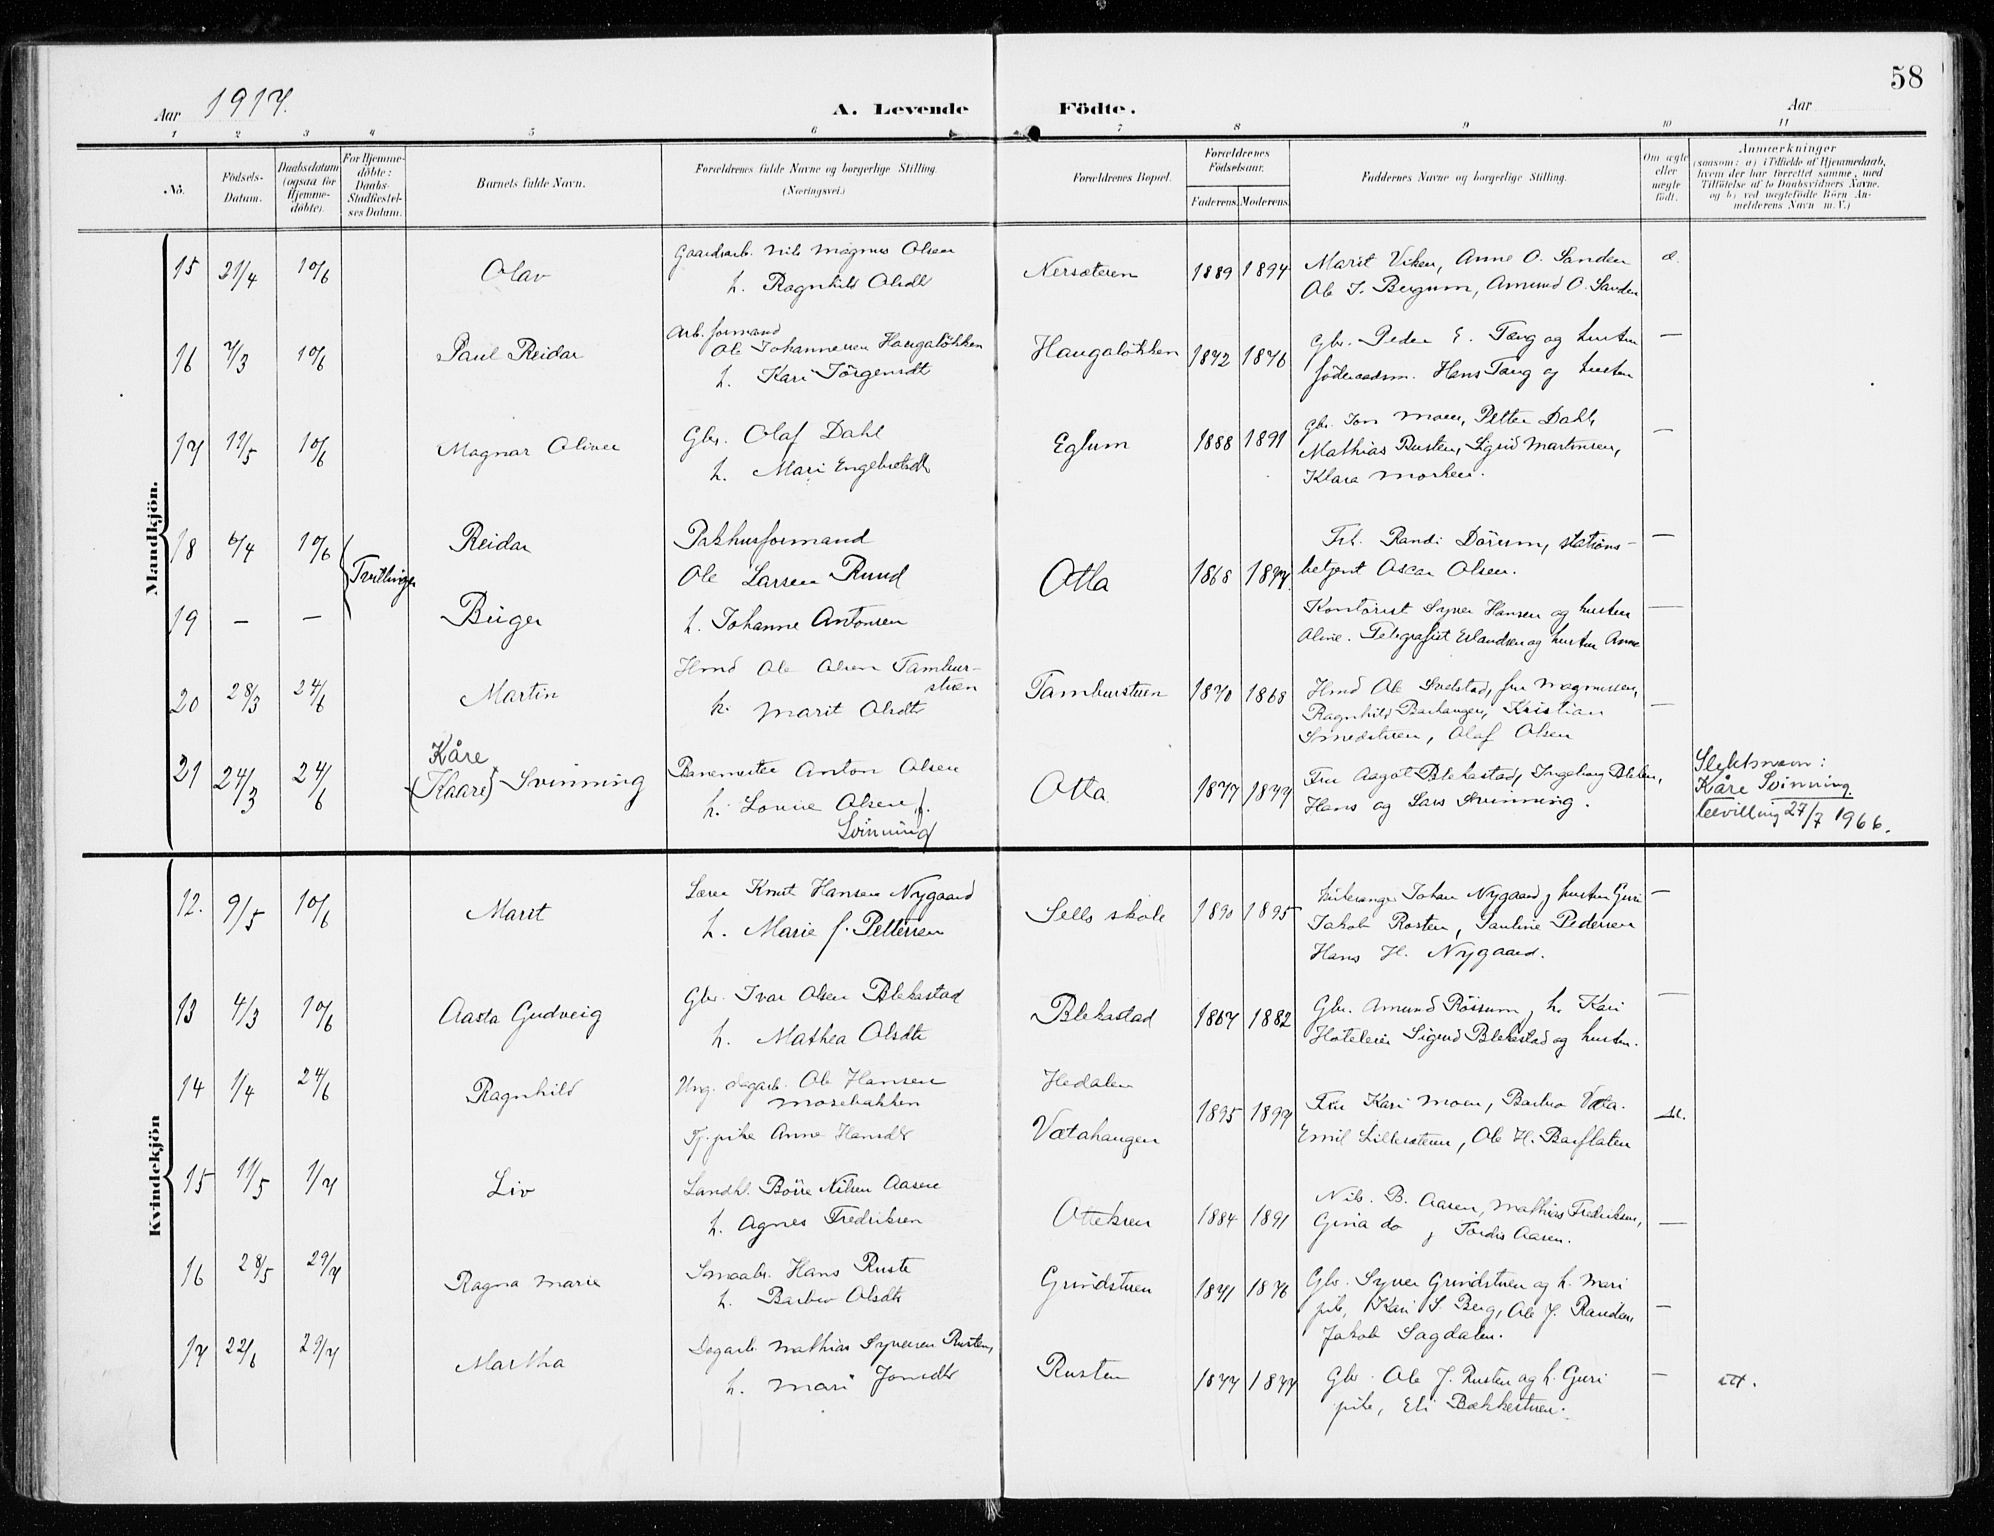 58
Aar 1917.
A. Levende Födte.
Aar
1 2 3 4 5 6 7 8 9 10 11
No.
Födsels-Datum.
Daabsdatum (ogsaa for Hjemme-döbte).
For Hjemme-döbte: Daabs-Stadfæstel-ses Datum.
Barnets fulde Navn.
Forældrenes fulde Navne og borgerlige Stilling (Næringsvei.)
Forældrenes Bopæl.
Forældrenes Födselsaar.
Faderens. Moderens.
Faddernes Navne og borgerlige Stilling.
Om ægte eller uægte födt.
Anmærkninger
(saasom: a) i Tilfælde af Hjemmedaab,
hvem der har forrettet samme, med
Tilföielse af to Daabsvidners Navne.
og b) ved uægtefödte Börn An-
melderens Navn m. V.)
Mandkjön.
15 21/4 10/6 Olav
Gaardsarb. Nils Magnus Olsen
h. Ragnhild Olsdt
Nersæteren 1889 1894
Marit Viken, Anne O. Sanden
Ole J. Bergum, Amund O. Sanden
æ.
16 7/3 10/6 Paul Reidar
Arb.formand
Ole Johannesen Haugaløkken
h. Kari Jörgensdt
Haugaløkken 1872 1876
Gbr. Peder E. Tæng og hustru
föderaadsm. Hans Tæng og hustru
—
17 11/5 10/6 Magnar Oliver
Gbr. Olaf Dahl
h. Mari Engebretsdt
Eglum 1888 1891
Gbr. Jon Moen, Petter Dahl,
Mathias Rusten, Sigrid Martinsen,
Klara Morken.
—
18 6/4 10/6 Tvillinger Reidar
Pakhusformand
Ole Larsen Ruud
Otla 1868 1877
Frk. Randi Dörum, stations-
betjent Oscar Olsen.
—
19 — — Birger
h. Johanne Antonsen
Kontorist Syver Hansen og hustru
Aline. Telegrafist Erlandsen og hustru Anne
—
20 28/3 24/6 Martin
Hmd Ole Olsen Tamburstuen
h. Marit Olsdt
Tamburstuen 1870 1868
Hmd Ole Svelstad, fru Magnussen,
Ragnhild Bachaugen, Kristian
Smedstuen, Olaf Olsen
—
21 24/3 24/6 Kåre
(Kaare) Svinning
Banemester Anton Olsen
h. Lovise Olsen f.
Svinning
Otta 1877 1879
Fru Aagot Blekastad, Ingeborg Bleken,
Hans og Lars Svinning.
Slektsnavn:
Kåre Svinning.
bevilling 27/7 1966.
Kvindekjön
12. 9/5 10/6 Marit
Lærer Knut Hansen Nygaard
h. Marie f. Pettersen
Sells skole 1890 1895
Kirkesanger Johan Nygaard, hustru Guri
Jakob Rosten, Pauline Pedersen
Hans H. Nygaard.
—
13 4/3 10/6 Aasta Gudveig
Gbr. Ivar Olsen Blekastad
h. Mathea Olsdt
Blekastad 1867 1882
Gbr. Amund Rössum, h. Kari
Hoteleier Sigurd Blekastad og hustru.
—
14 1/4 24/6 Ragnhild
Ung. dagarb. Ole Hansen
Mosebakken
Tj.pike Anne Hansdt
Hedalen
Vætahaugen 1895 1899
Fru Kari Moen, Barbro Væta.
Emil Lillesteen, Ole H. Barflaten
15 11/5 1/7 Liv
Landh. Börre Nilsen Aasen
h. Agnes Fredriksen
Ottekren 1884 1891
Nils. B. Aasen, Mathias Fredriksen,
Gina do, Tordis Aasen.
—
16 28/5 29/7 Ragna Marie
Smaabr. Hans Ruste
h. Barbro Olsdt
Grindstuen 1871 1876
Gbr. Syver Grindstuen og h. Mari
pike, Kari S. Berg, Ole J. Randen,
Jakob Sagdalen.
—
17 22/6 29/7 Martha
Dagarb. Mathias Syversen Rusten,
h. Mari Jonsdt
Rusten 1877 1877
Gbr. Ole J. Rusten og h. Guri
pike, Eli Bækkestuen.
—